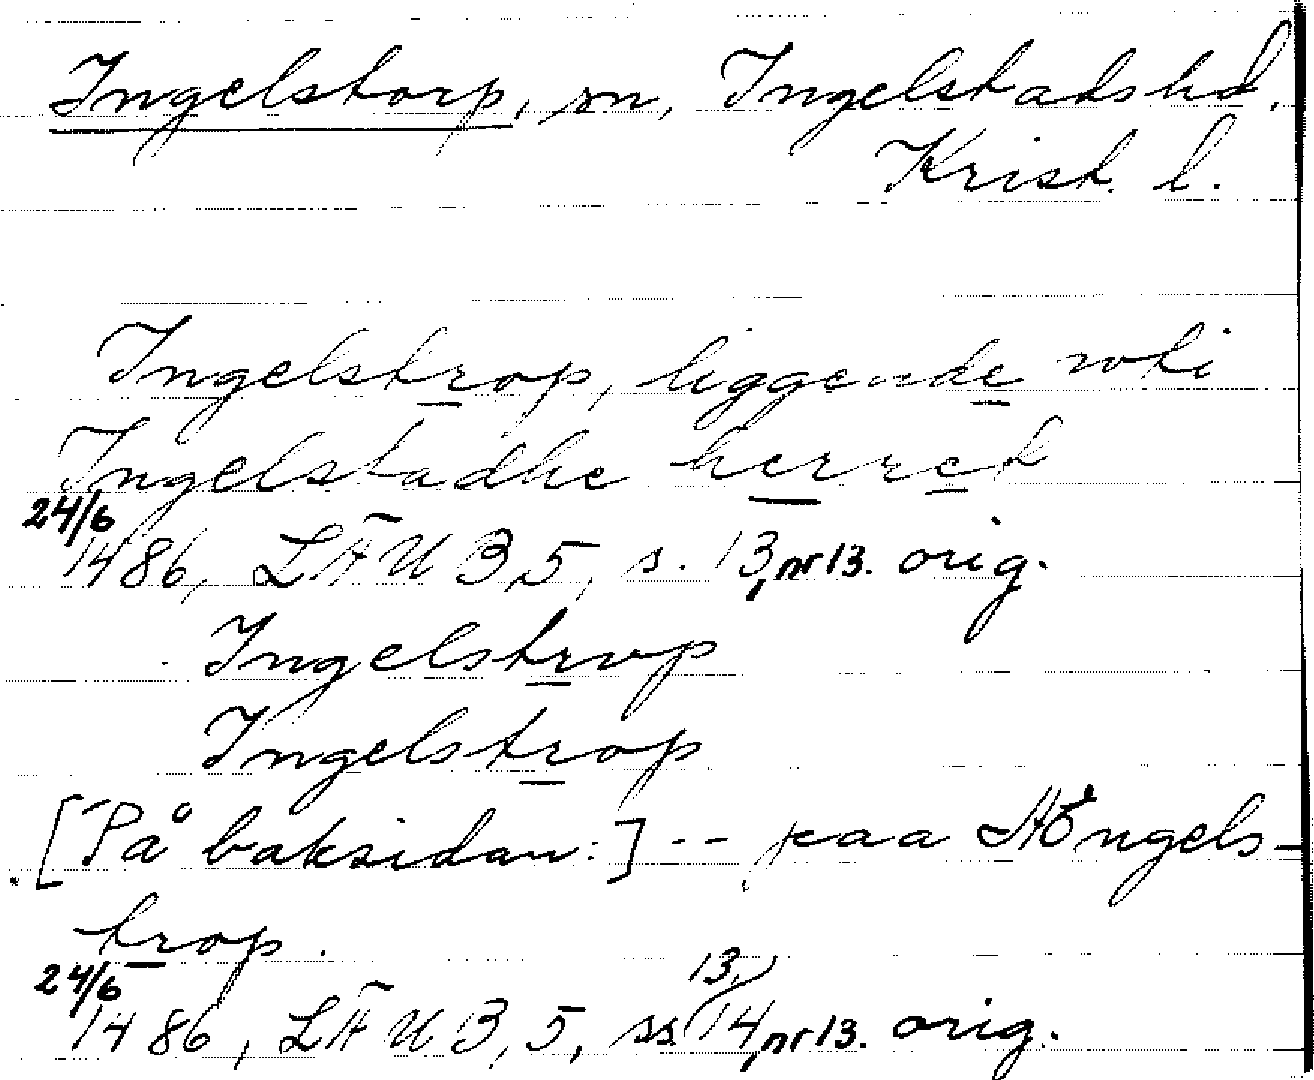 Ingelstorp, sn, Ingelstads hd.
Krist. l.
Ingelstrop, liggende wti
Ingelstadhe herret
24/6
1486, LÄUB 5, s. 13, nr 13. orig.
Ingelstrop
Ingelstrop
[På baksidan:] -- paa Engels-
trop.
24/6
1486, LÄUB, 5, ss 13, 14, nr 13. orig.